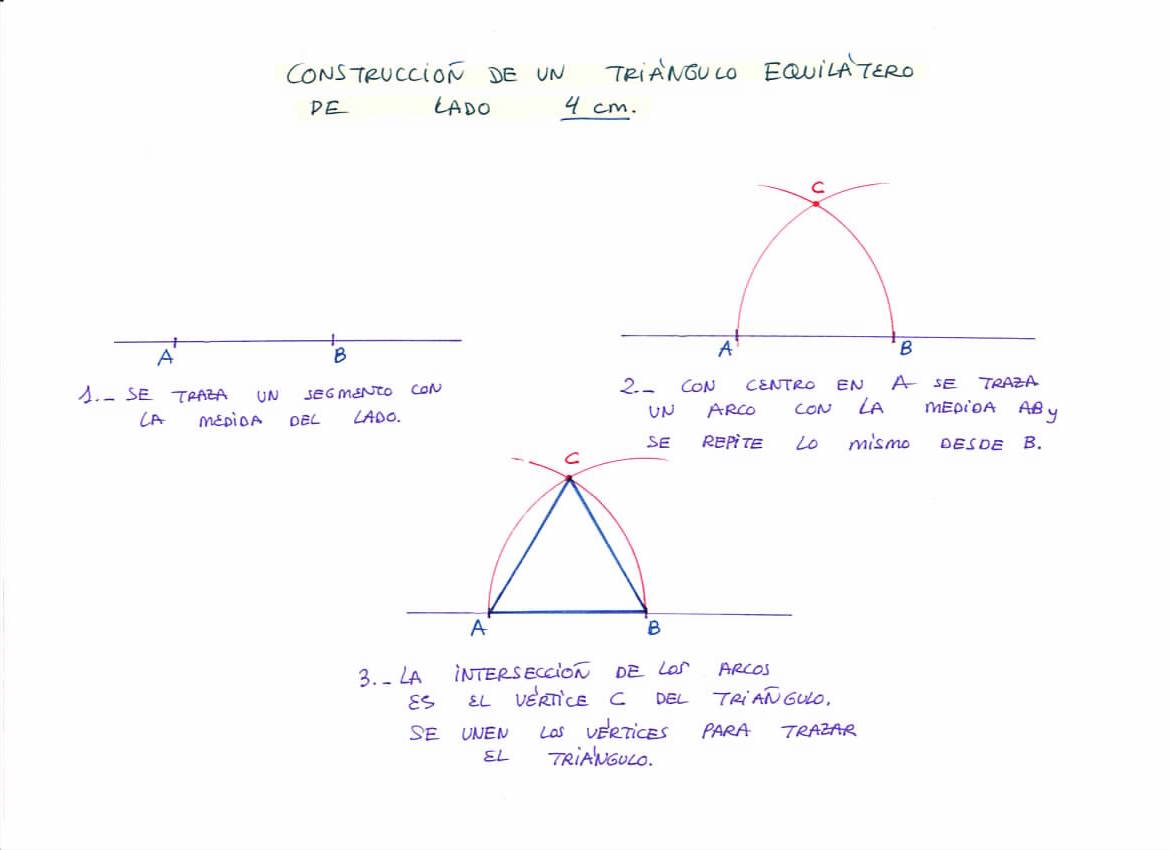 CONSTRUCCIÓN DE UN TRIÁNGULO EQUILÁTERO
DE LADO 4 cm.
C
A B
A B
1.- SE TRAZA UN SEGMENTO CON
LA MEDIDA DEL LADO.
2.- CON CENTRO EN A SE TRAZA
UN ARCO CON LA MEDIDA AB y
SE REPITE LO MISMO DESDE B.
C
A B
3.- LA INTERSECCIÓN DE LOS ARCOS
ES EL VÉRTICE C DEL TRIÁNGULO.
SE UNEN LOS VÉRTICES PARA TRAZAR
EL TRIÁNGULO.